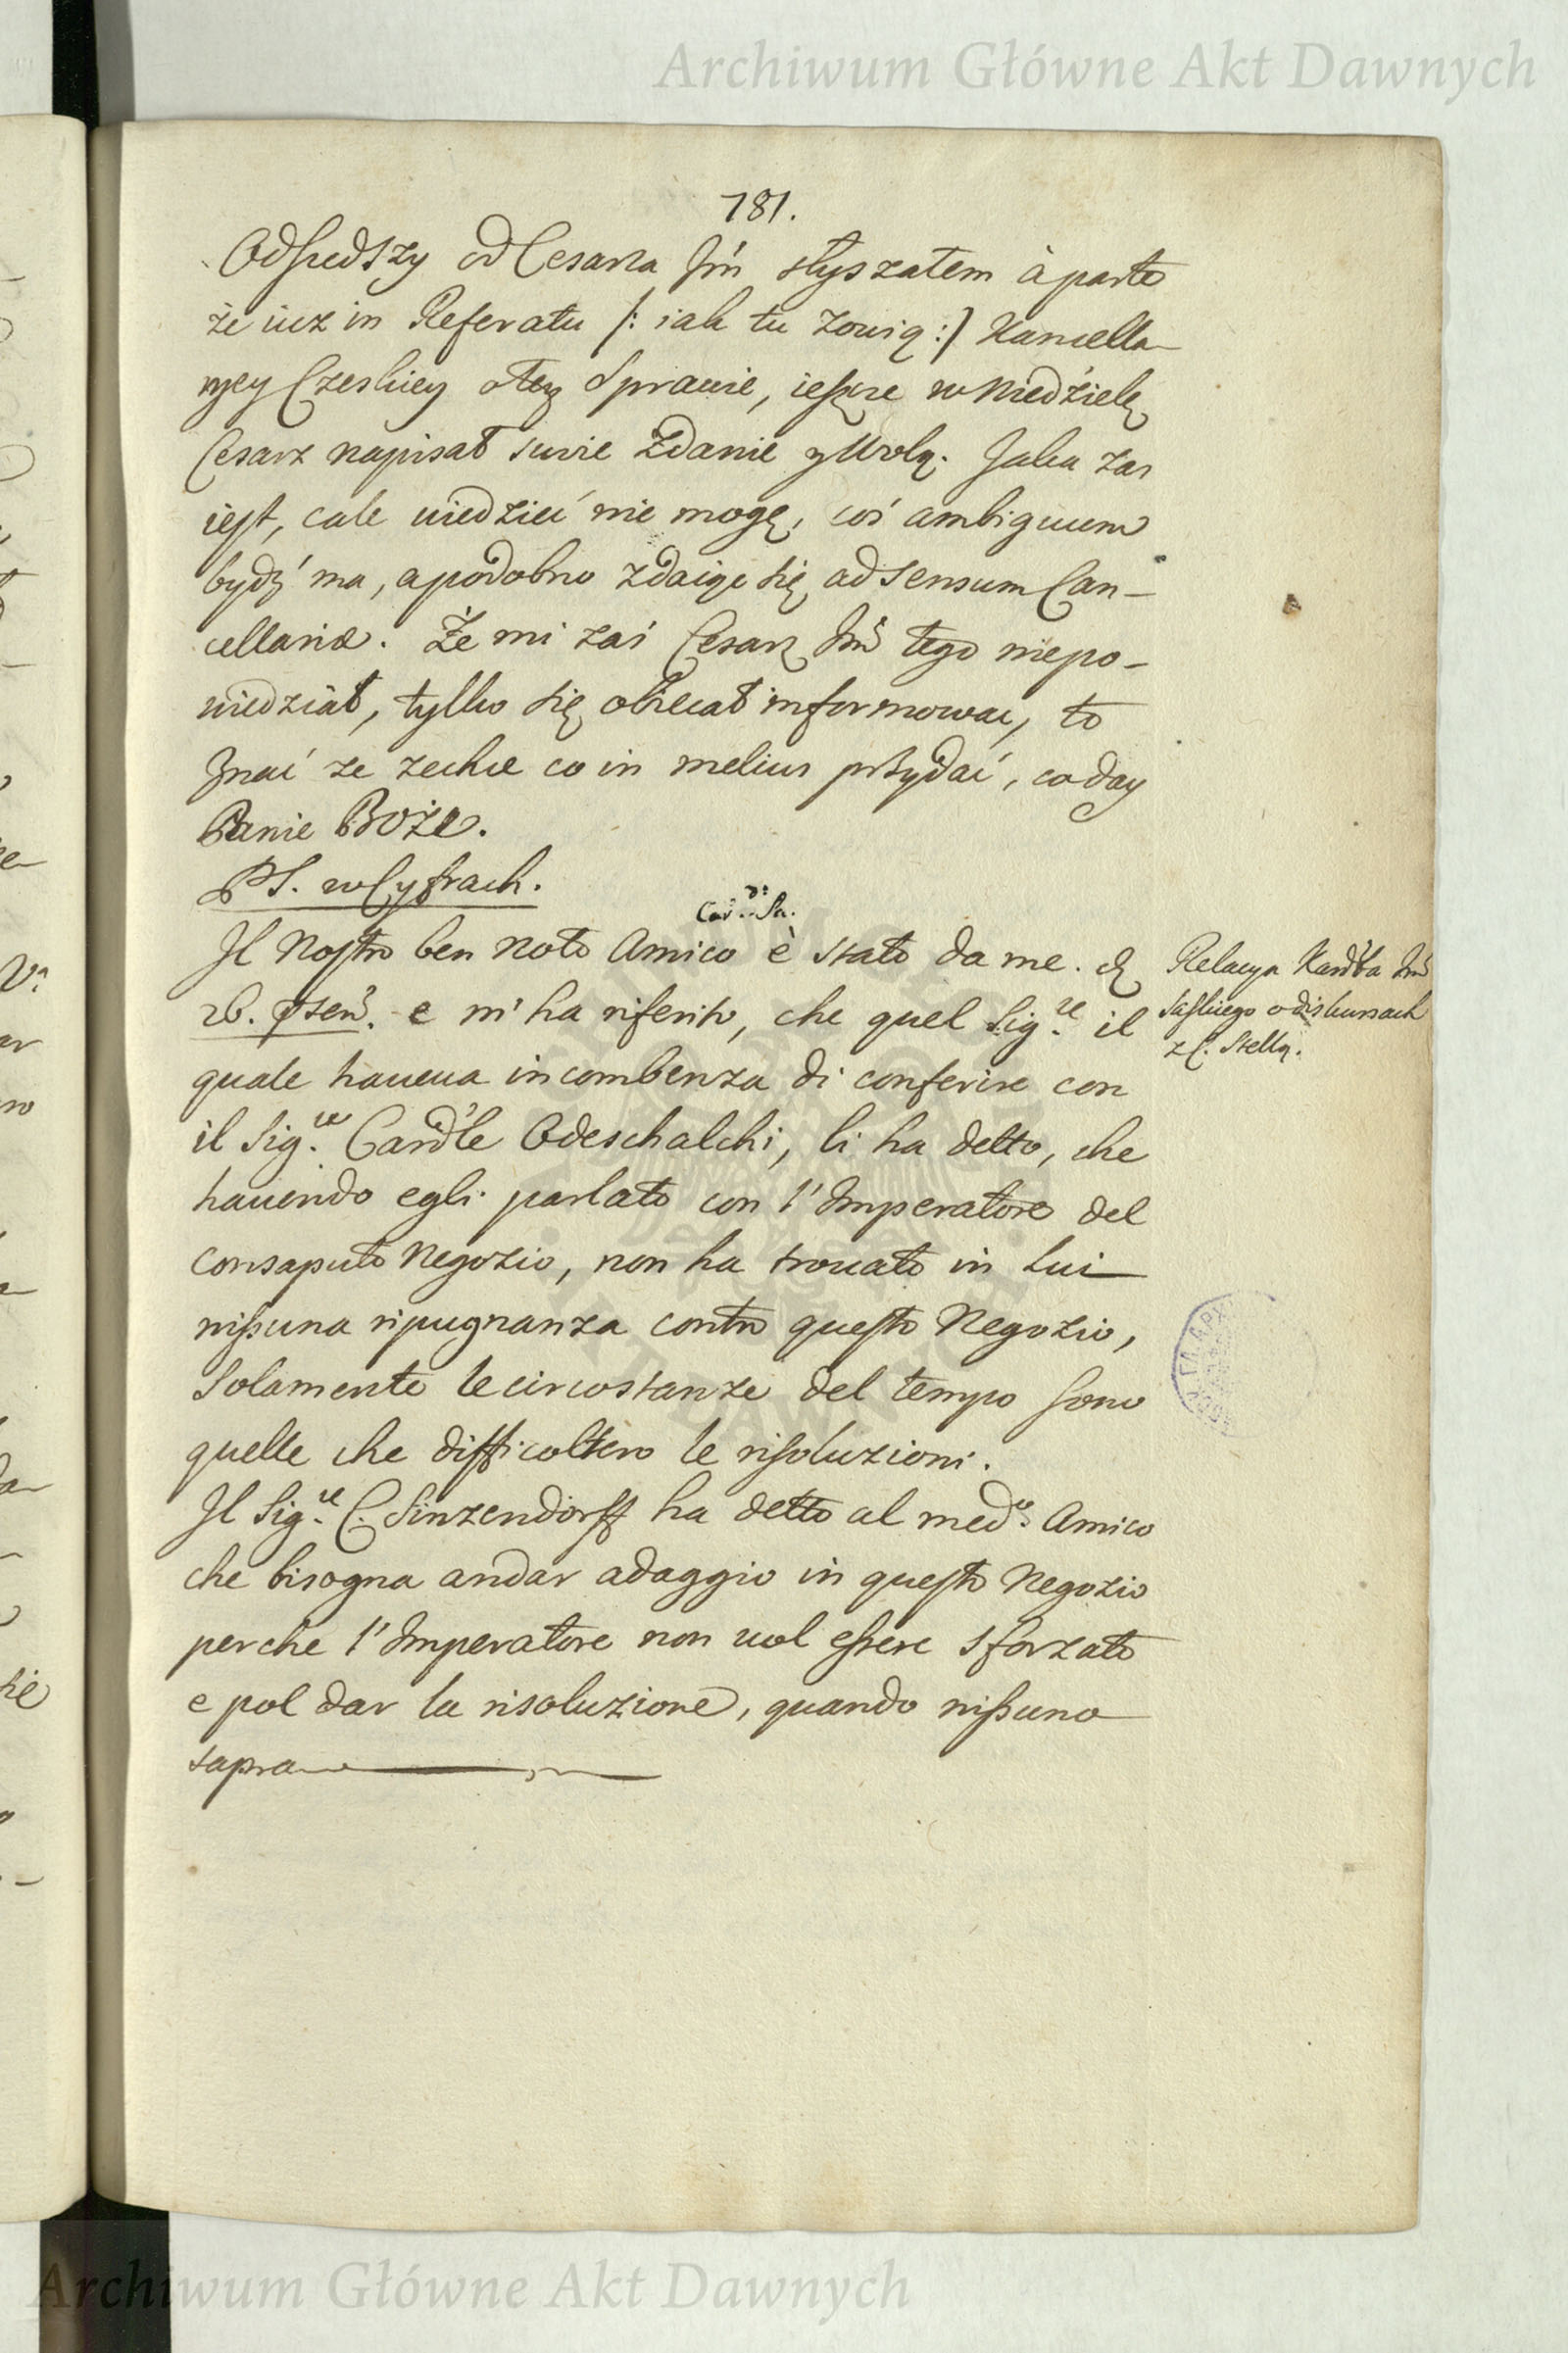 Archiwum Główne Akt Dawnych
781.
Odszedszy od Cesarza Jm̃ słyszałem à parte
że iuz in Referatu /: iak tu zowią :/ Kancella-
ryey Czeskiey o tey Sprawie, ieszcze w Niedzielę
Cesarz napisał swoie Zdanie y Wolą. Jaka zas
iest, cale wiedzieć nie mogę, coś ambiguum
bydź ma, a podobno zdaiąc się ad sensum Can-
cellariæ. Że mi zaś Cesarz Jm̃ tego niepo-
wiedział, tylko się obiecał informować, to
znać ze zechce co in melius przydać, co day
Panie Boże.
PS. w Cyfrach.
Car.. Sa.
Il Nostro ben noto Amico è stato da me. d.
26. p̃sen̄. e m'ha riferito, che quel Sig.re il
quale haueua incombenza di conferire con
il Sig.re Card̃le Odeschalchi, li ha detto, che
hauendo egli parlato con l'Imperatore del
consaputo Negozio, non ha trouato in Lui
nissuna ripugnanza contro questo Negozio,
Solamente le circostanze del tempo sono
quelle che difficoltero le risoluzioni.
Il Sig.re C. Sinzendorff ha detto al med.o Amico
che bisogna andar adaggio in questo Negozio
perche l'Imperatore non uol essere sforzato
e pol dar la risoluzione, quando nissuno
sapra
Relacya Kard̃ła Jm̃
Saskiego o diskursach
z C. Stellą.
Archiwum Główne Akt Dawnych